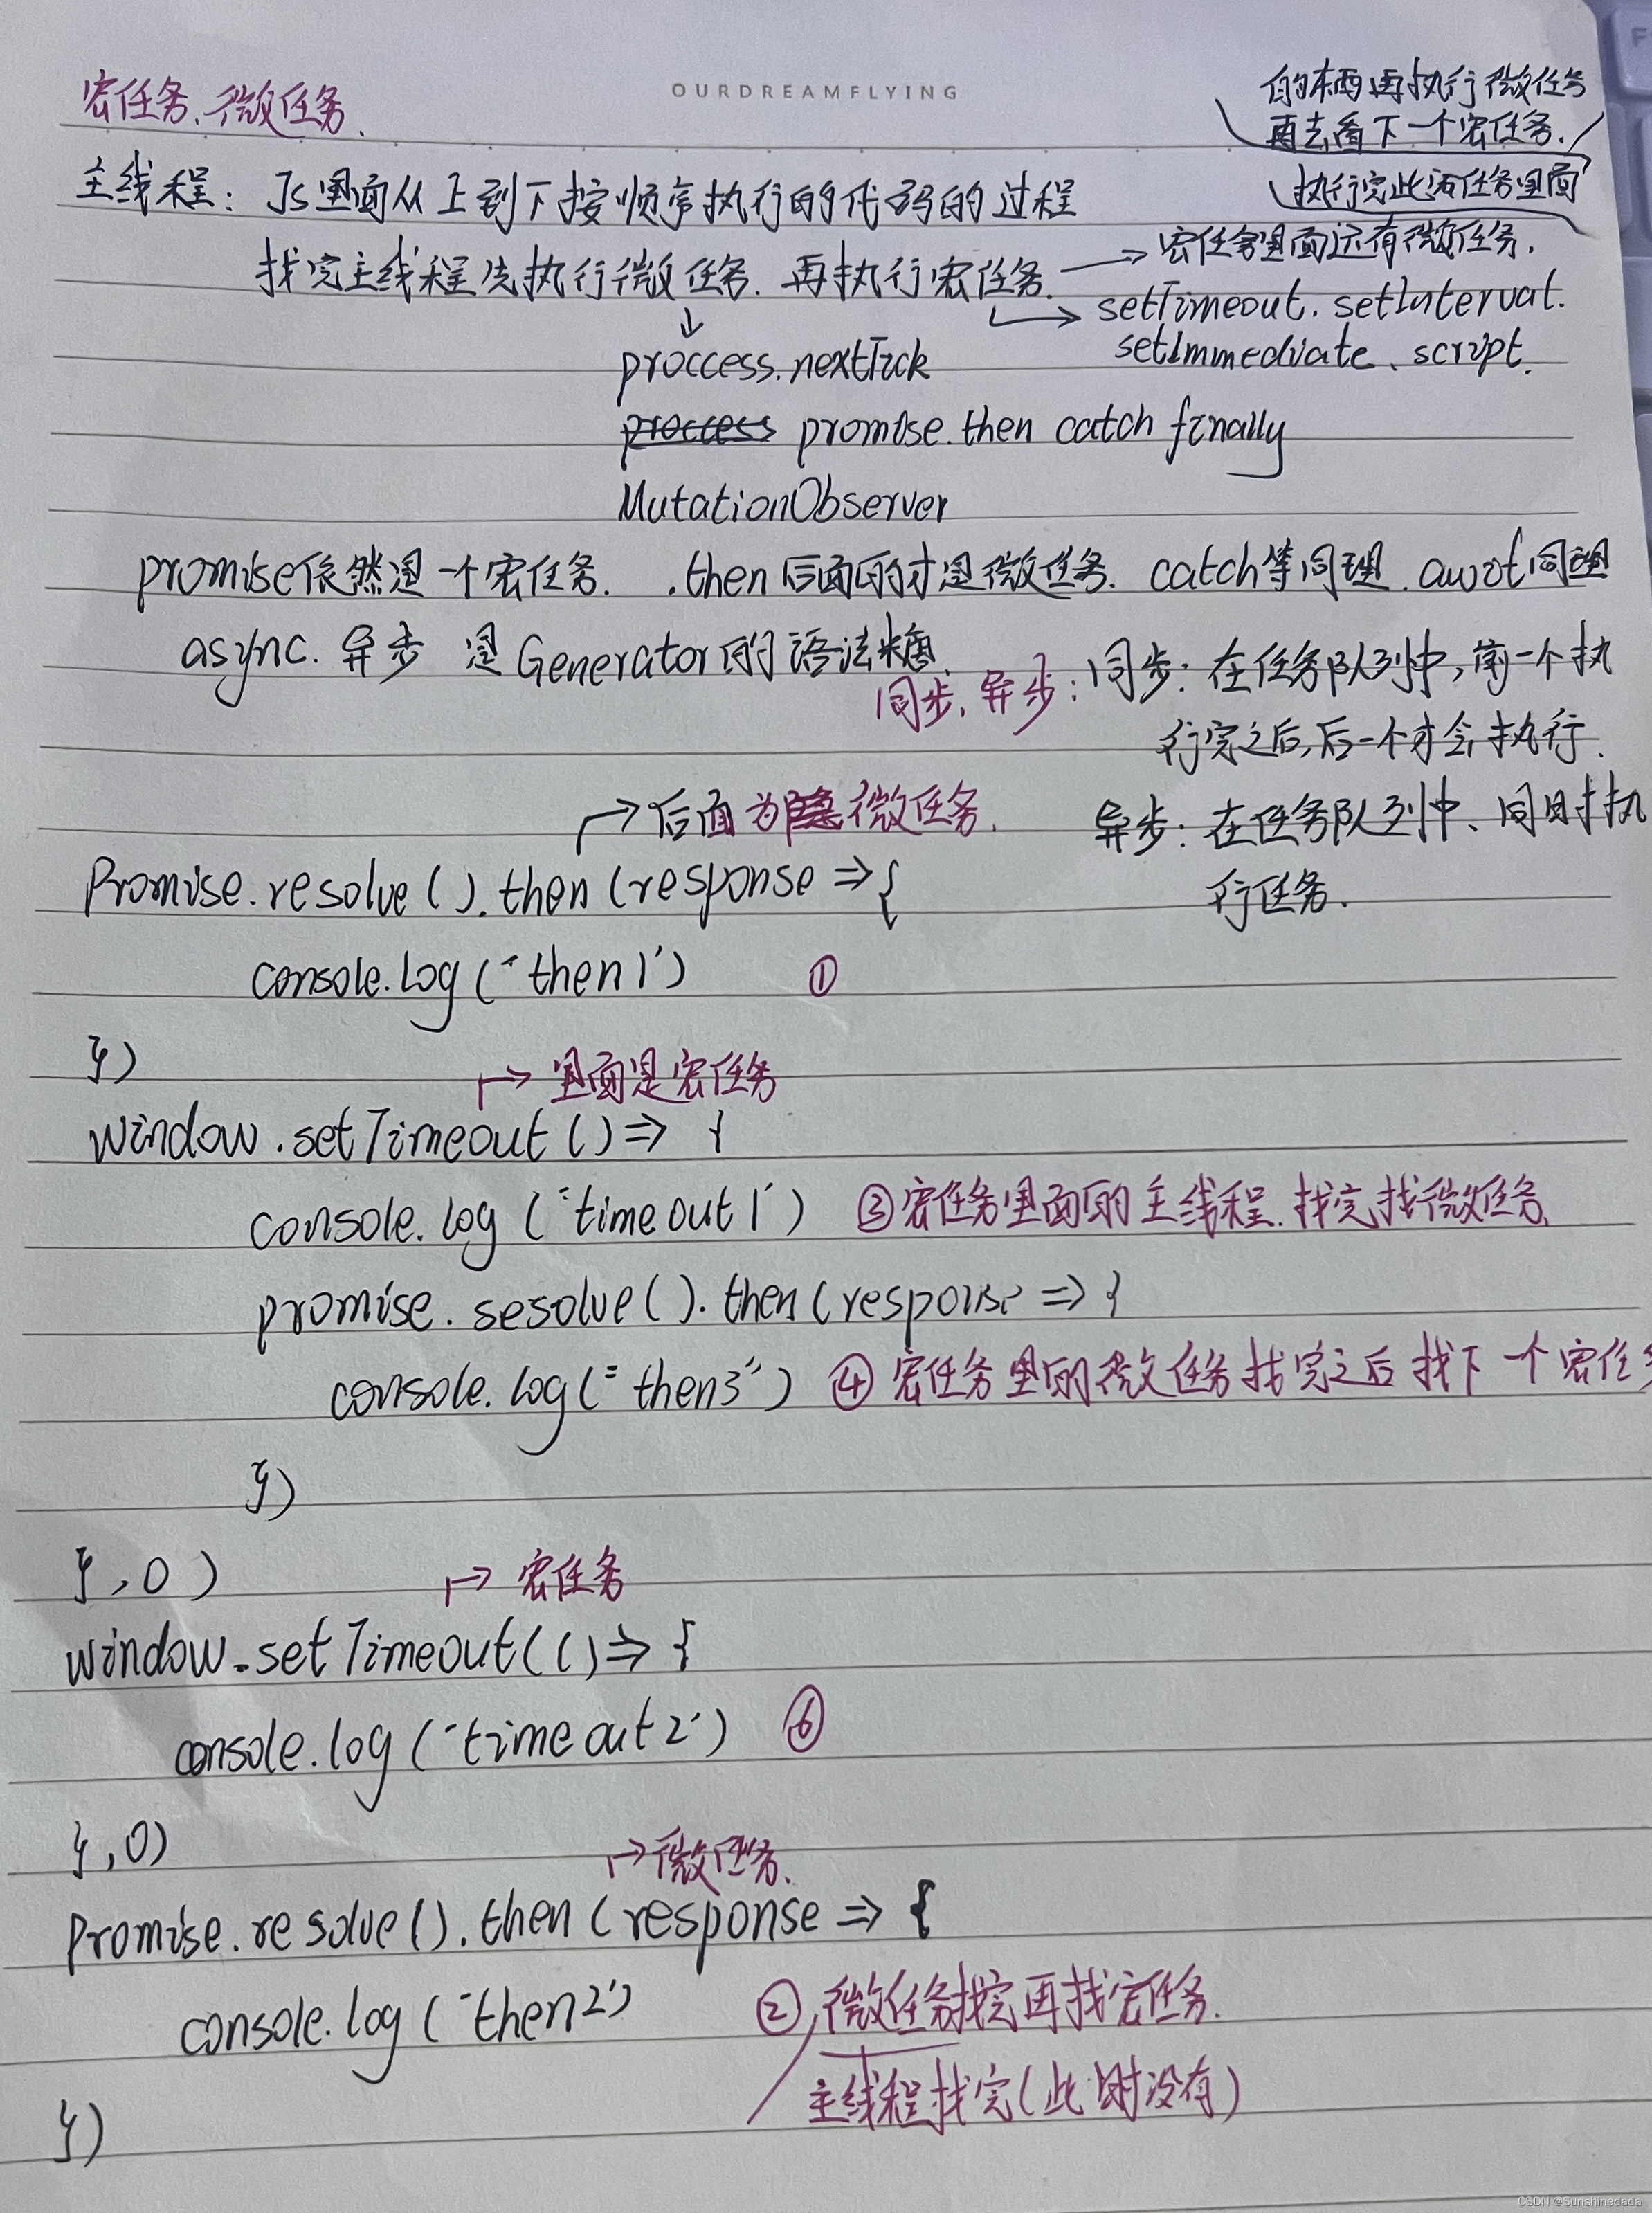 OURDREAMFLYING
宏任务、微任务.
的东西再执行微任务
再去看下一个宏任务.
执行完此宏任务里面
主线程: Js里面从上到下按顺序执行的代码的过程
宏任务里面还有微任务.
找完主线程先执行微任务. 再执行宏任务.
setTimeout. setInterval.
setImmediate、script.
proccess.nextTick
proccess promise.then catch finally
MutationObserver
promise依然是一个宏任务. .then后面的才是微任务. catch等同理. await同理
async. 异步 是Generator的语法糖.
同步、异步: 同步: 在任务队列中,前一个执
行完之后,后一个才会执行.
异步: 在任务队列中、同时执
行任务.
→后面为微任务.
Promise.resolve().then(response => {
console.log('then1') ①
})
→ 里面是宏任务
window.setTimeout()=> {
console.log('timeout1') ③宏任务里面的主线程. 找完找微任务.
promise.sesolve().then(response => {
console.log("then3") ④宏任务里的微任务找完之后找下一个宏任务
})
},0)
→ 宏任务
window.setTimeout(()=> {
console.log('timeout2') ⑥
},0)
→微任务.
Promise.resolve().then(response => {
console.log('then2') ②微任务找完再找宏任务.
主线程找完(此时没有)
})
CSDN @Sunshinedada